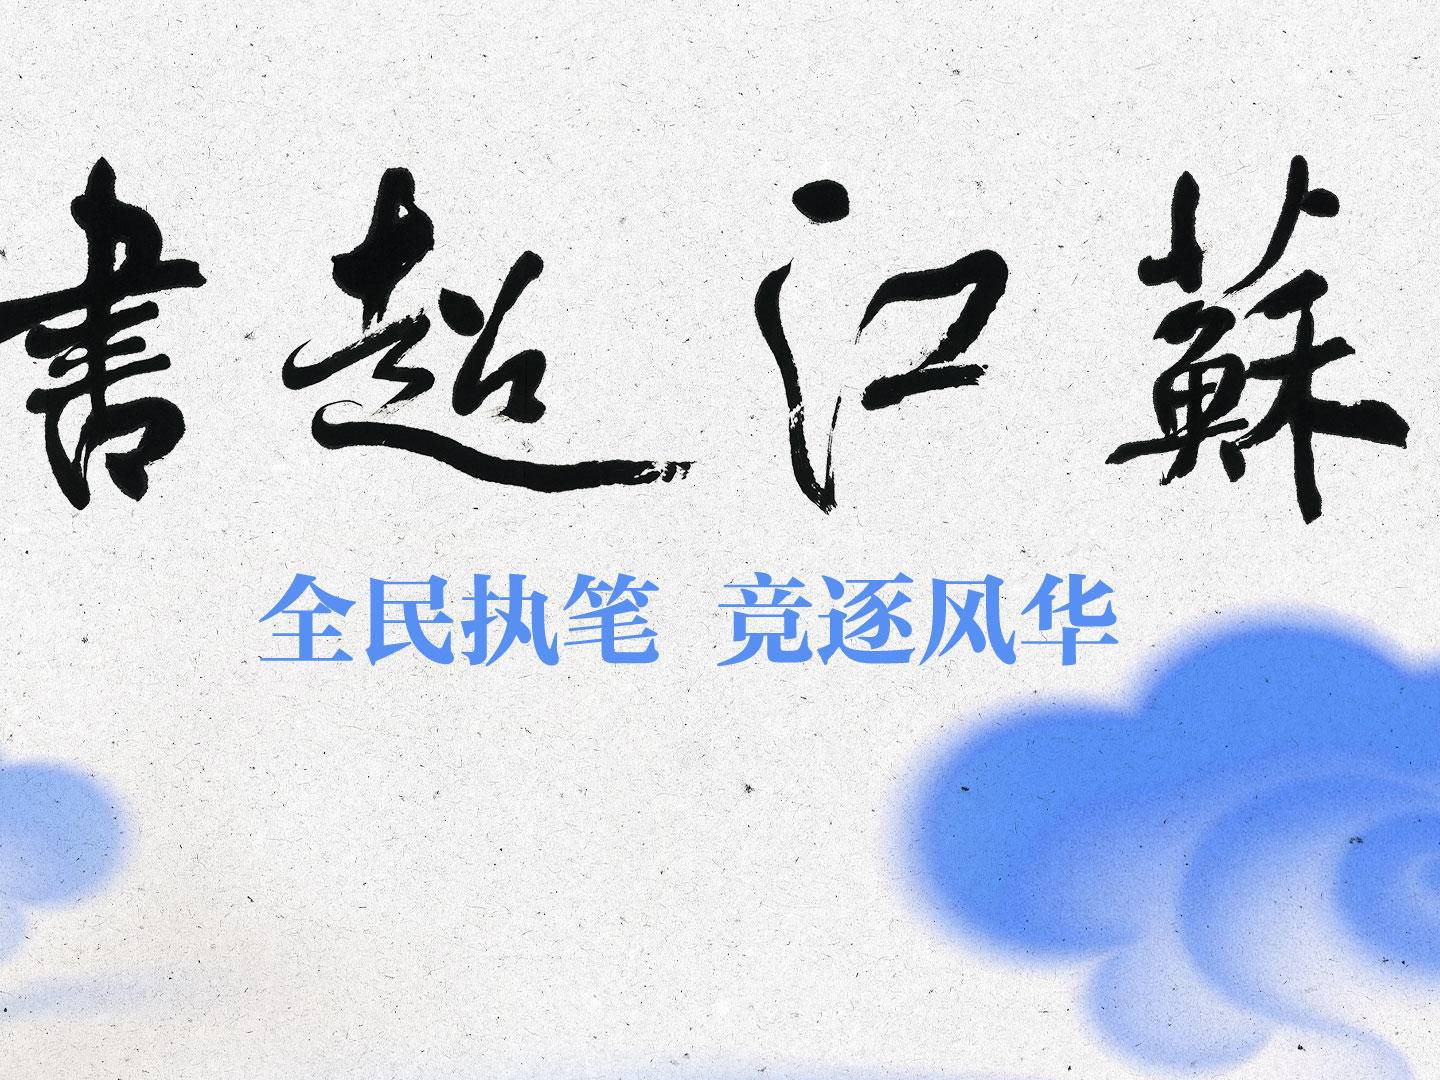 書超 江蘇
全民执笔 竞逐风华